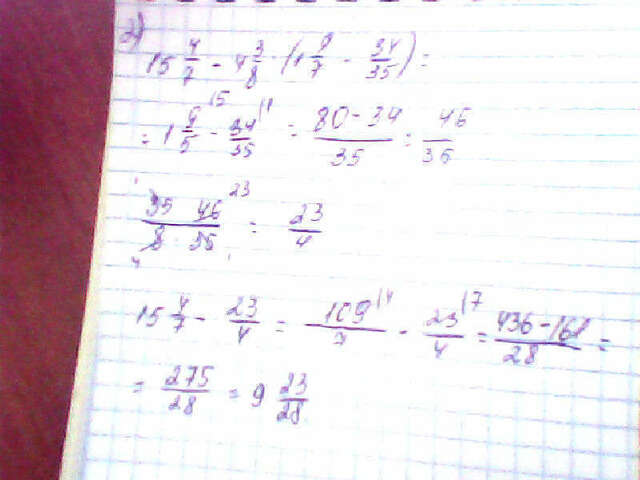 2)
15 4/7 - 4 3/8 · (1 9/7 - 34/35) =
= 1 9/5 |5 - 34/35 |1 = 80-34/35 = 46/35
35 46 23/8 · 35 = 23/4
15 4/7 - 23/4 = 109/7 |4 - 23/4 |7 = 436-161/28 =
= 275/28 = 9 23/28